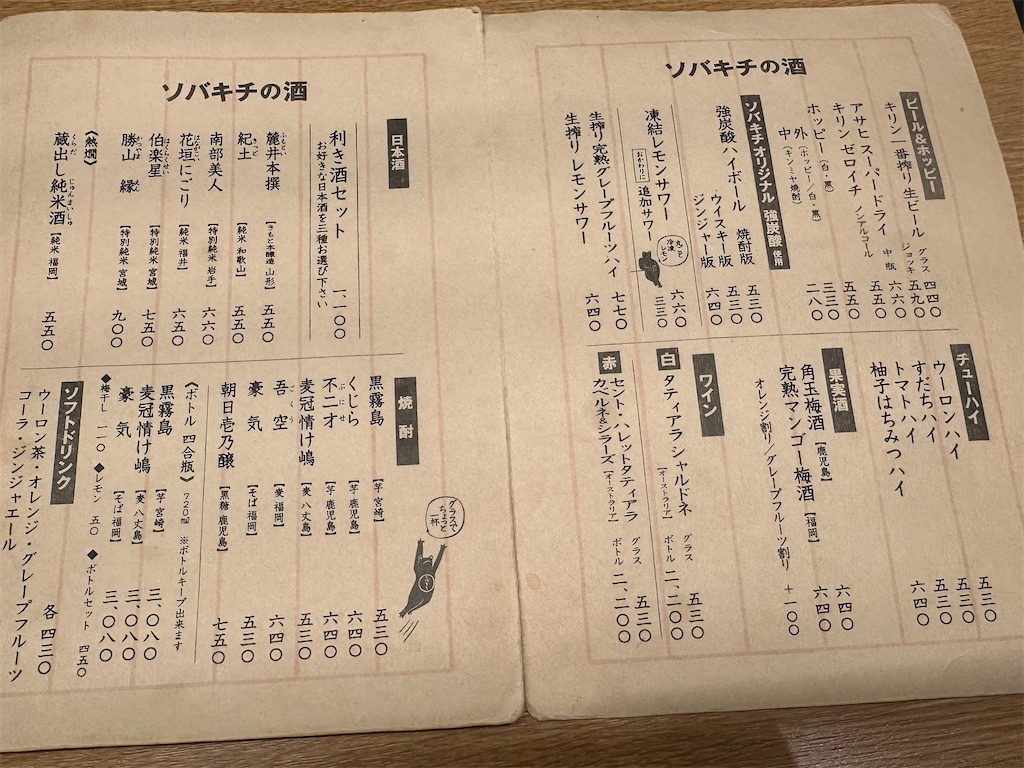 ソバキチの酒
ビール&ホッピー
キリン一番搾り生ビール グラス 四四〇
ジョッキ 五九〇
アサヒスーパードライ 中瓶 六六〇
キリンゼロイチ ノンアルコール 五五〇
ホッピー(白・黒) 五五〇
外(ホッピー/白・黒) 三三〇
中(キンミヤ焼酎) 二八〇
ソバキチオリジナル 強炭酸 使用
強炭酸ハイボール 焼酎版 五三〇
ウイスキー版 五三〇
ジンジャー版 六四〇
凍結レモンサワー 六六〇
おかわりに 追加サワー 三三〇
丸ごと冷凍レモン
生搾り完熟グレープフルーツハイ 七七〇
生搾りレモンサワー 六四〇
チューハイ
ウーロンハイ 五三〇
すだちハイ 五三〇
トマトハイ 五三〇
柚子はちみつハイ 六四〇
果実酒
角玉梅酒【鹿児島】 六四〇
完熟マンゴー梅酒【福岡】 六四〇
オレンジ割り/グレープフルーツ割り +一〇〇
ワイン
白 タティアラ シャルドネ グラス 五三〇
[オーストラリア] ボトル 二、二〇〇
赤 セント・ハレットタティアラ グラス 五三〇
カベルネ&シラーズ[オーストラリア] ボトル 二、二〇〇
ソバキチの酒
日本酒
利き酒セット 一、一〇〇
お好きな日本酒を三種お選び下さい
麓井本撰【きもと本醸造 山形】 五五〇
紀土【純米 和歌山】 五五〇
南部美人【特別純米 岩手】 六六〇
花垣にごり【純米 福井】 六五〇
伯楽星【特別純米 宮城】 七五〇
勝山 縁【特別純米 宮城】 九〇〇
《熱燗》
蔵出し純米酒【純米 福岡】 五五〇
焼酎
黒霧島【芋 宮崎】 五三〇
くじら【芋 鹿児島】 六四〇
不二才【芋 鹿児島】 六四〇
麦冠情け嶋【麦 八丈島】 五三〇
吾空【麦 福岡】 六四〇
豪気【そば 福岡】 五三〇
朝日壱乃醸【黒糖 鹿児島】 七五〇
グラスでちょっと一杯
《ボトル 四合瓶》720ml ※ボトルキープ出来ます
黒霧島【芋 宮崎】 三、〇八〇
麦冠情け嶋【麦 八丈島】 三、〇八〇
豪気【そば 福岡】 三、〇八〇
◆梅干し 一一〇 ◆レモン 五〇 ◆ボトルセット 四五〇
ソフトドリンク
ウーロン茶・オレンジ・グレープフルーツ
コーラ・ジンジャエール 各 四三〇